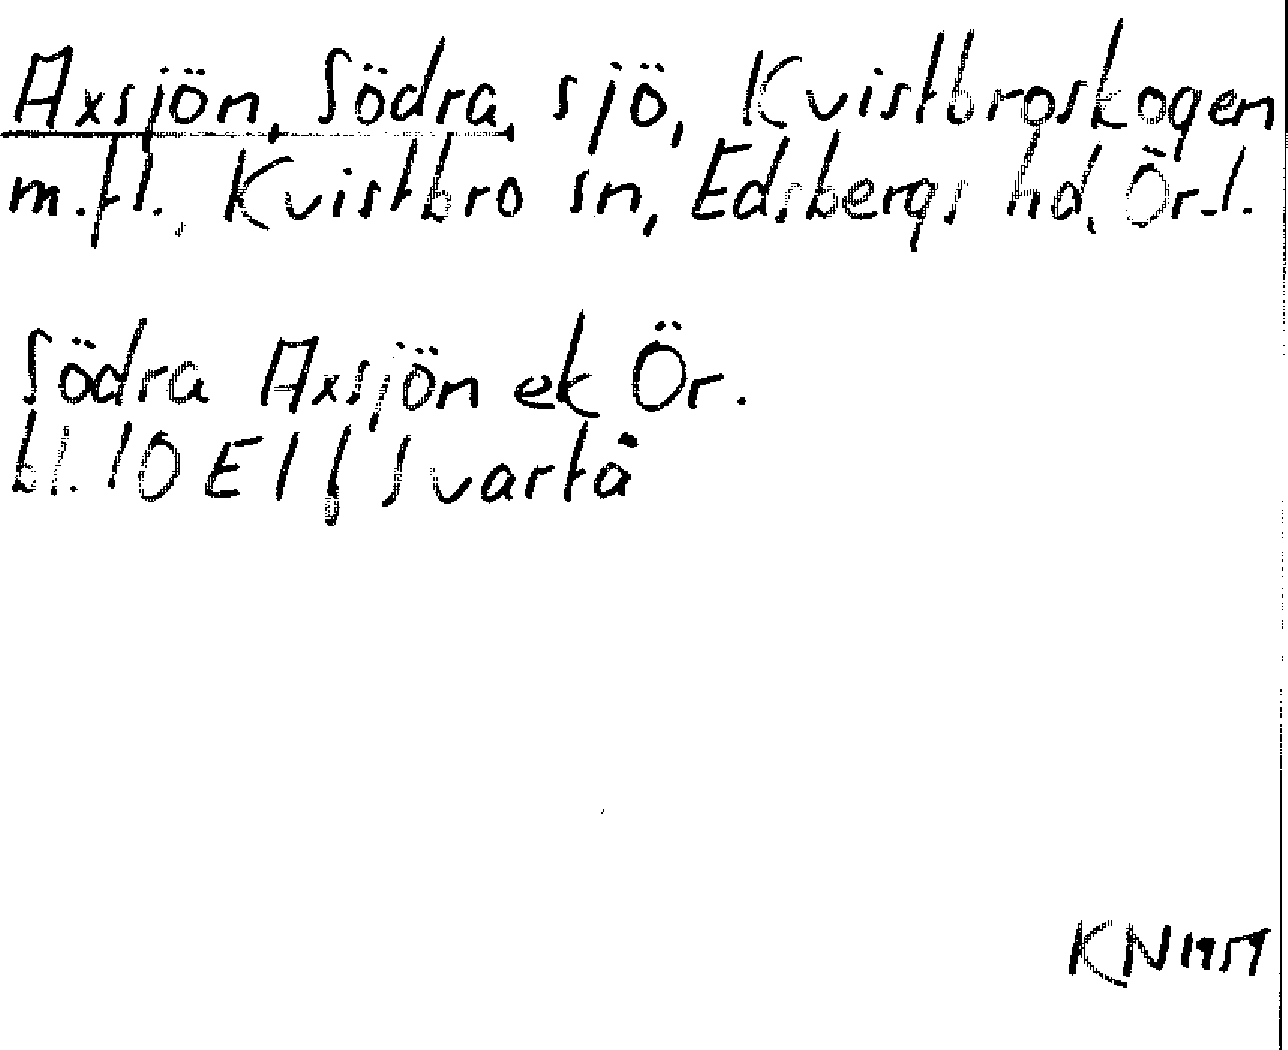 Axsjön, Södra, sjö, Kvistbroskogen
m.fl., Kvistbro sn, Edsbergs hd, Ör.l.
Södra Axsjön ek Ör.
bl. 10 E 1 f Svartå
KN 1959